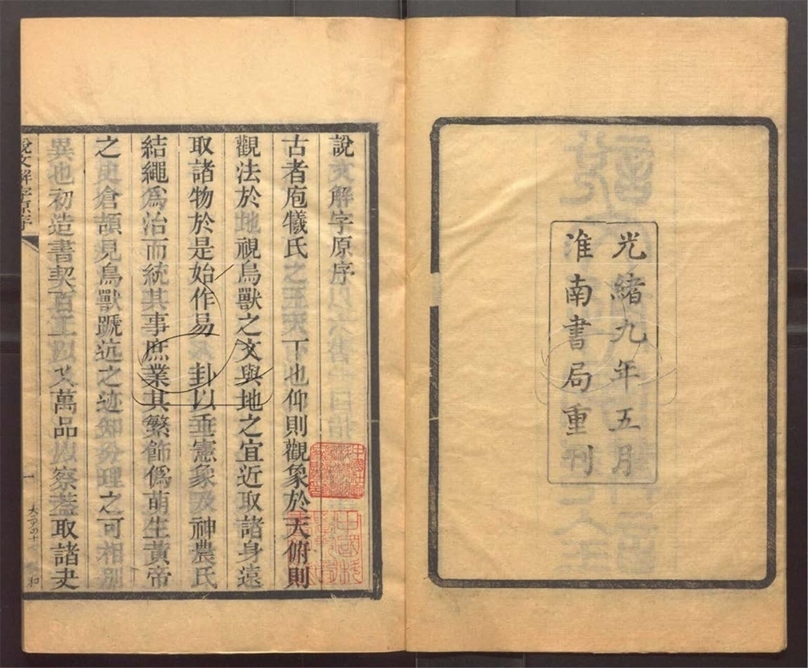 光緒九年五月
淮南書局重刊
說文解字原序
古者庖犧氏之王天下也仰則觀象於天俯則
觀法於地視鳥獸之文與地之宜近取諸身遠
取諸物於是始作易八卦以垂憲象及神農氏
結繩爲治而統其事庶業其繁飾僞萌生黃帝
之史倉頡見鳥獸蹏迒之迹知分理之可相別
異也初造書契百工以乂萬品以察蓋取諸夬
說文解字原序
一